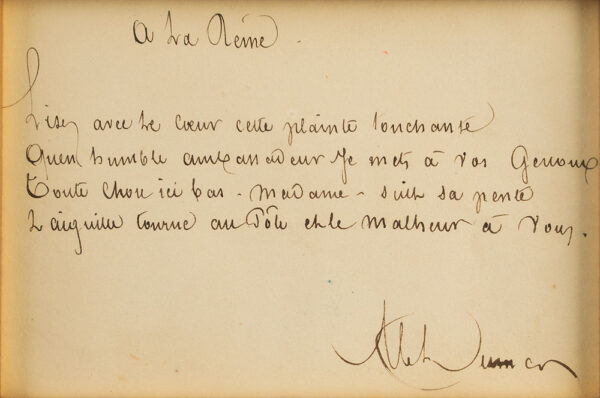 A La Reine
Lisez avec le Cœur cette plainte touchante
Quen humble ambassadeur Je mets à vos Genoux
Toute Chose ici bas - Madame - suit sa pente
L'aiguille tourne au Pôle et le Malheur à Vous.
Alex Dumas